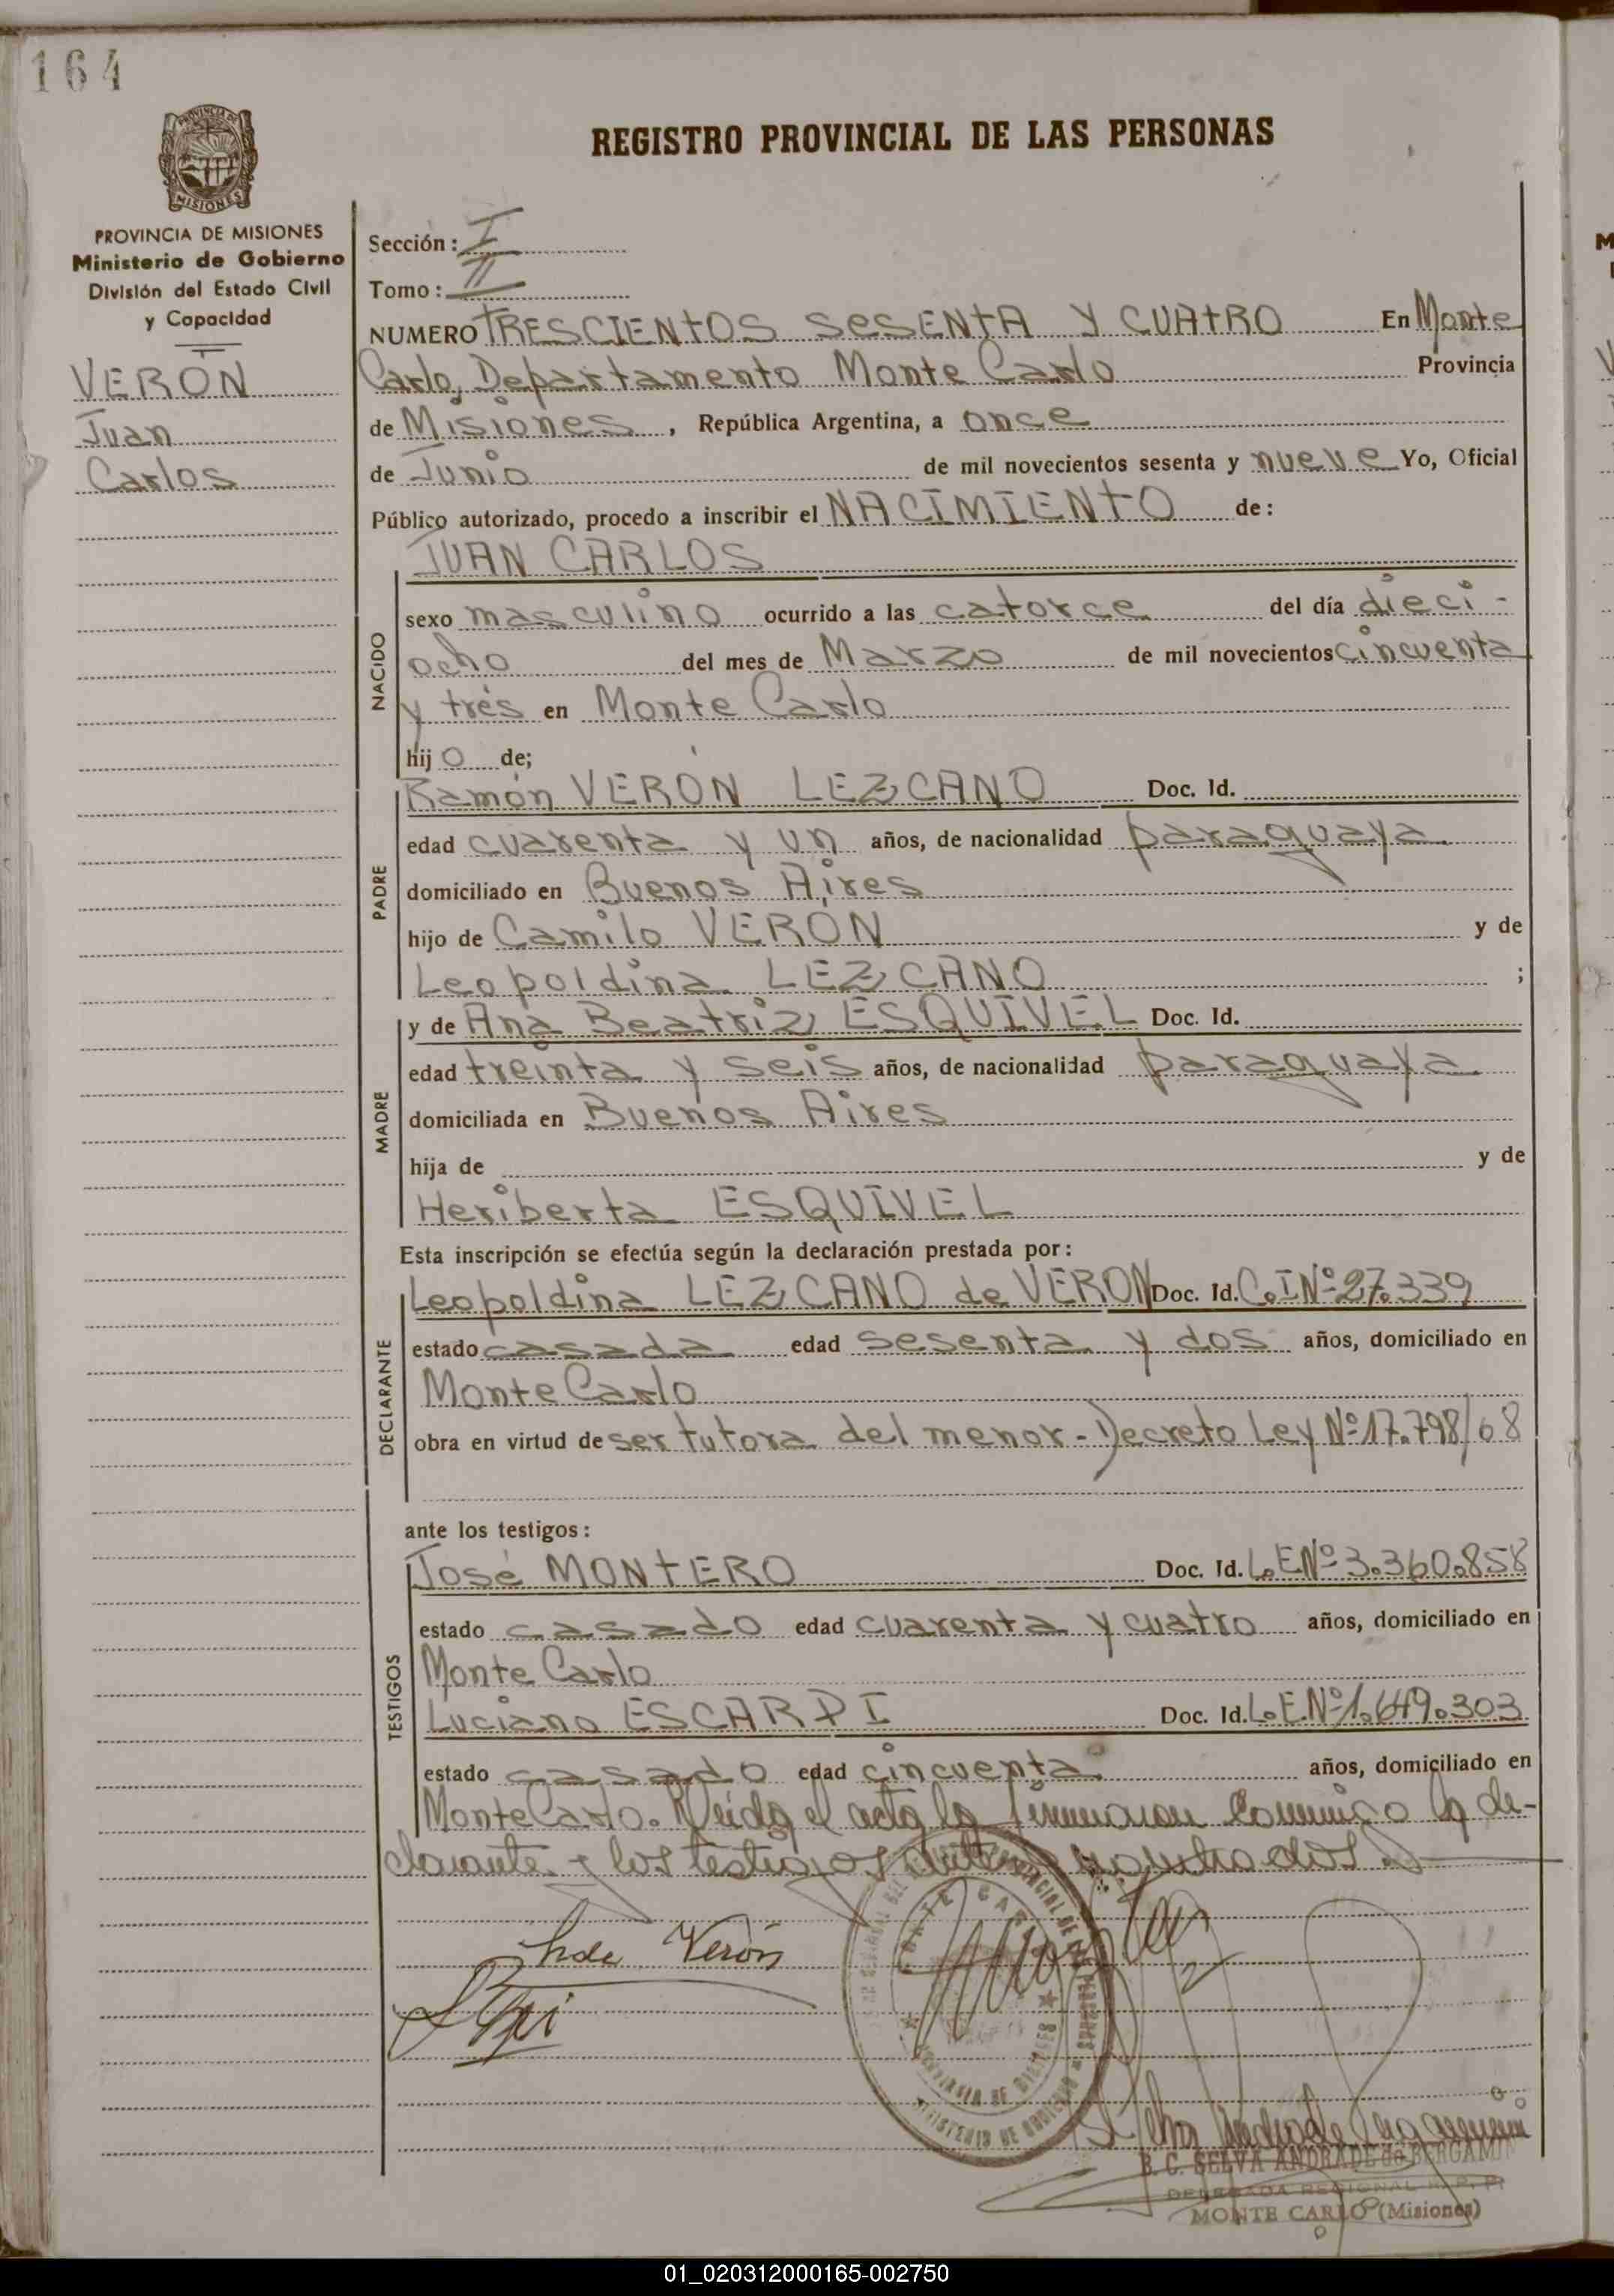 164
REGISTRO PROVINCIAL DE LAS PERSONAS
PROVINCIA DE MISIONES
MISIONES
PROVINCIA DE MISIONES
Ministerio de Gobierno
División del Estado Civil
y Capacidad
VERÓN
Juan
Carlos
Sección: I
Tomo: II
NUMERO TRESCIENTOS SESENTA Y CUATRO En Monte
Carlo, Departamento Monte Carlo Provincia
de Misiones, República Argentina, a once
de Junio de mil novecientos sesenta y nueve Yo, Oficial
Público autorizado, procedo a inscribir el NACIMIENTO de:
JUAN CARLOS
NACIDO
sexo masculino ocurrido a las catorce del día dieci-
ocho del mes de Marzo de mil novecientos cincuenta
y trés en Monte Carlo
hijo de;
PADRE
Ramón VERÓN LEZCANO Doc. Id.
edad cuarenta y un años, de nacionalidad paraguaya
domiciliado en Buenos Aires
hijo de Camilo VERON y de
Leopoldina LEZCANO ;
MADRE
y de Ana Beatriz ESQUIVEL Doc. Id.
edad treinta y seis años, de nacionalidad paraguaya
domiciliada en Buenos Aires
hija de y de
Heriberta ESQUIVEL
Esta inscripción se efectúa según la declaración prestada por:
DECLARANTE
Leopoldina LEZCANO de VERON Doc. Id. C.I Nº 27.339
estado casada edad sesenta y dos años, domiciliado en
Monte Carlo
obra en virtud de ser tutora del menor.- Decreto Ley Nº 17.798/68
ante los testigos:
TESTIGOS
José MONTERO Doc. Id. L.E Nº 3.360.858
estado casado edad cuarenta y cuatro años, domiciliado en
Monte Carlo
Luciano ESCARPI Doc. Id. L.E Nº 1.649.303
estado casado edad cincuenta años, domiciliado en
Monte Carlo. Leida el acta la conmigo la de-
clarante y los testigos
MONTE CARLO
de Verón
B. C. SELVA ANDRADE de BERGAMI
DELEGADA REGIONAL R. P. P.
MONTE CARLO (Misiones)
01_020312000165-002750